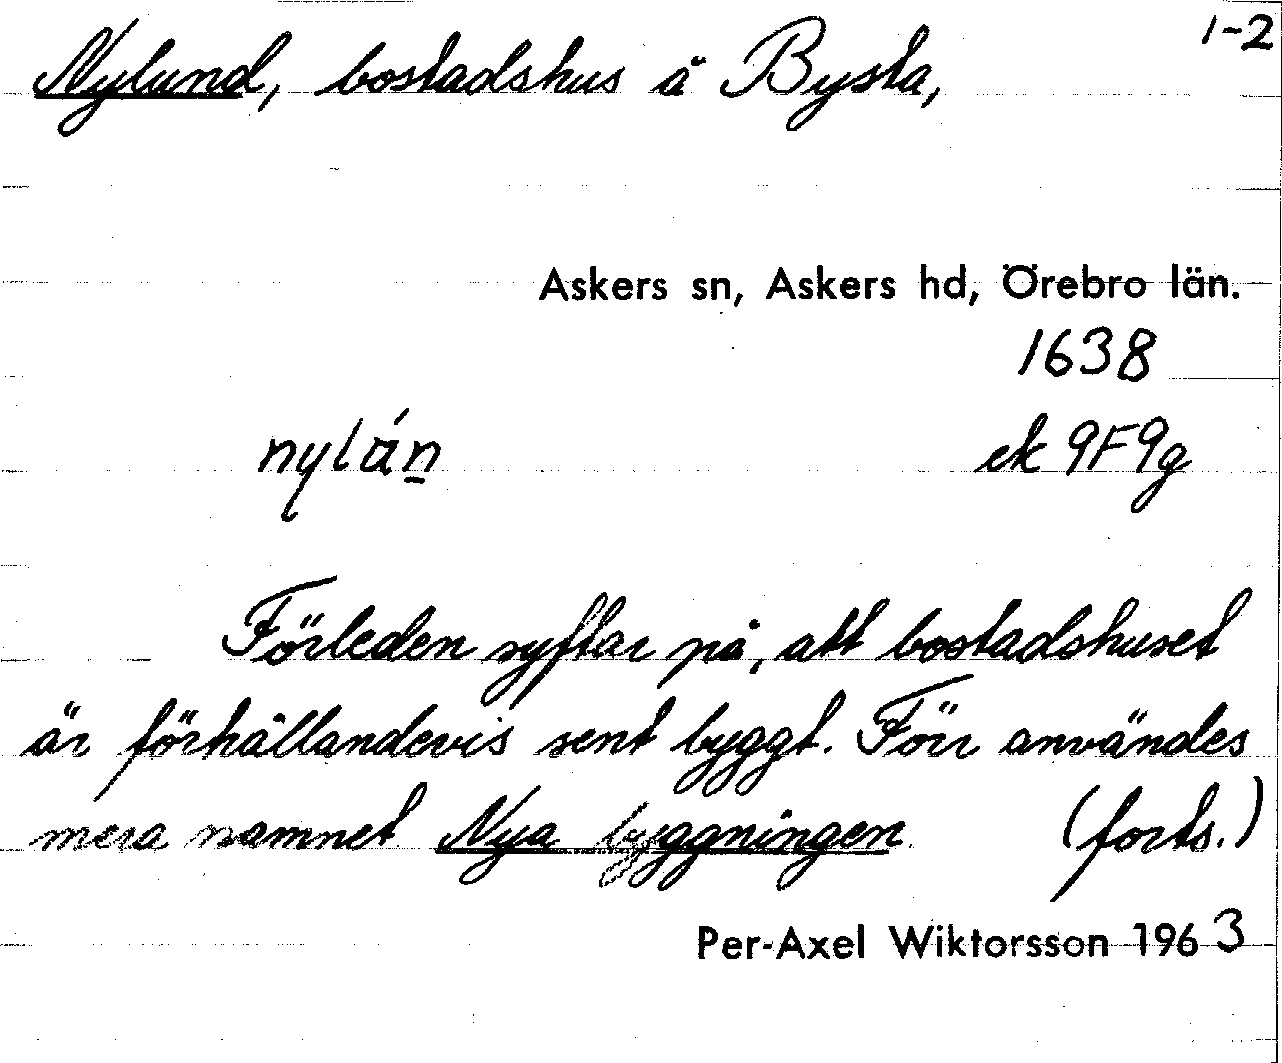 1-2
Nylund, bostadshus å Bysta,
Askers sn, Askers hd, Örebro län.
1638
nylán̲ ek 9F9g
Förleden syftar på, att bostadshuset
är förhållandevis sent byggt. Förr användes
mera namnet Nya byggningen (forts.)
Per-Axel Wiktorsson 1963